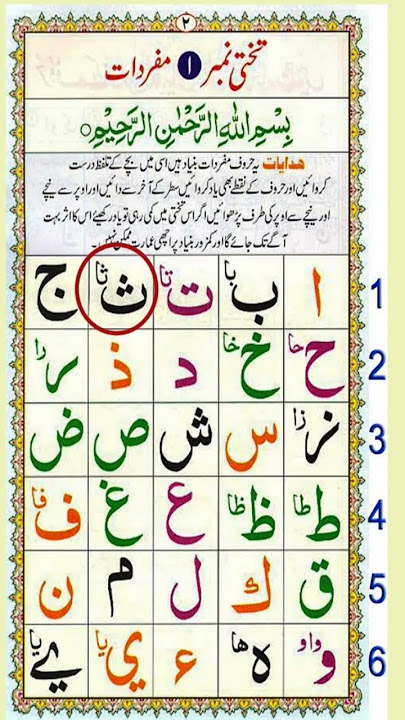 ۲
تختی نمبر ۱ مفردات
بِسْمِ اللهِ الرَّحْمٰنِ الرَّحِيْمِ
ھدایات یہ حروف مفردات بنیاد ہیں اسی میں بچے کے تلفظ درست
کروائیں اور حروف کے نقطے بھی یاد کروائیں سطر کے آخر سے دائیں اور اوپر سے نیچے
اور نیچے سے اوپر کی طرف پڑھوائیں اگر اس تختی میں کمی رہی تو یاد رکھیئے اس کا اثر بہت
آگے تک جائے گا اور کمزور بنیاد پر اچھی عمارت ممکن نہیں۔
ا ب با ت تا ث ثا ج 1
ح حا خ خا د ذ ر را 2
ز زا س ش ص ض 3
ط طا ظ ظا ع غ ف فا 4
ق ك ل م ن 5
و واو ہ ھا ء ي یا ے یا 6